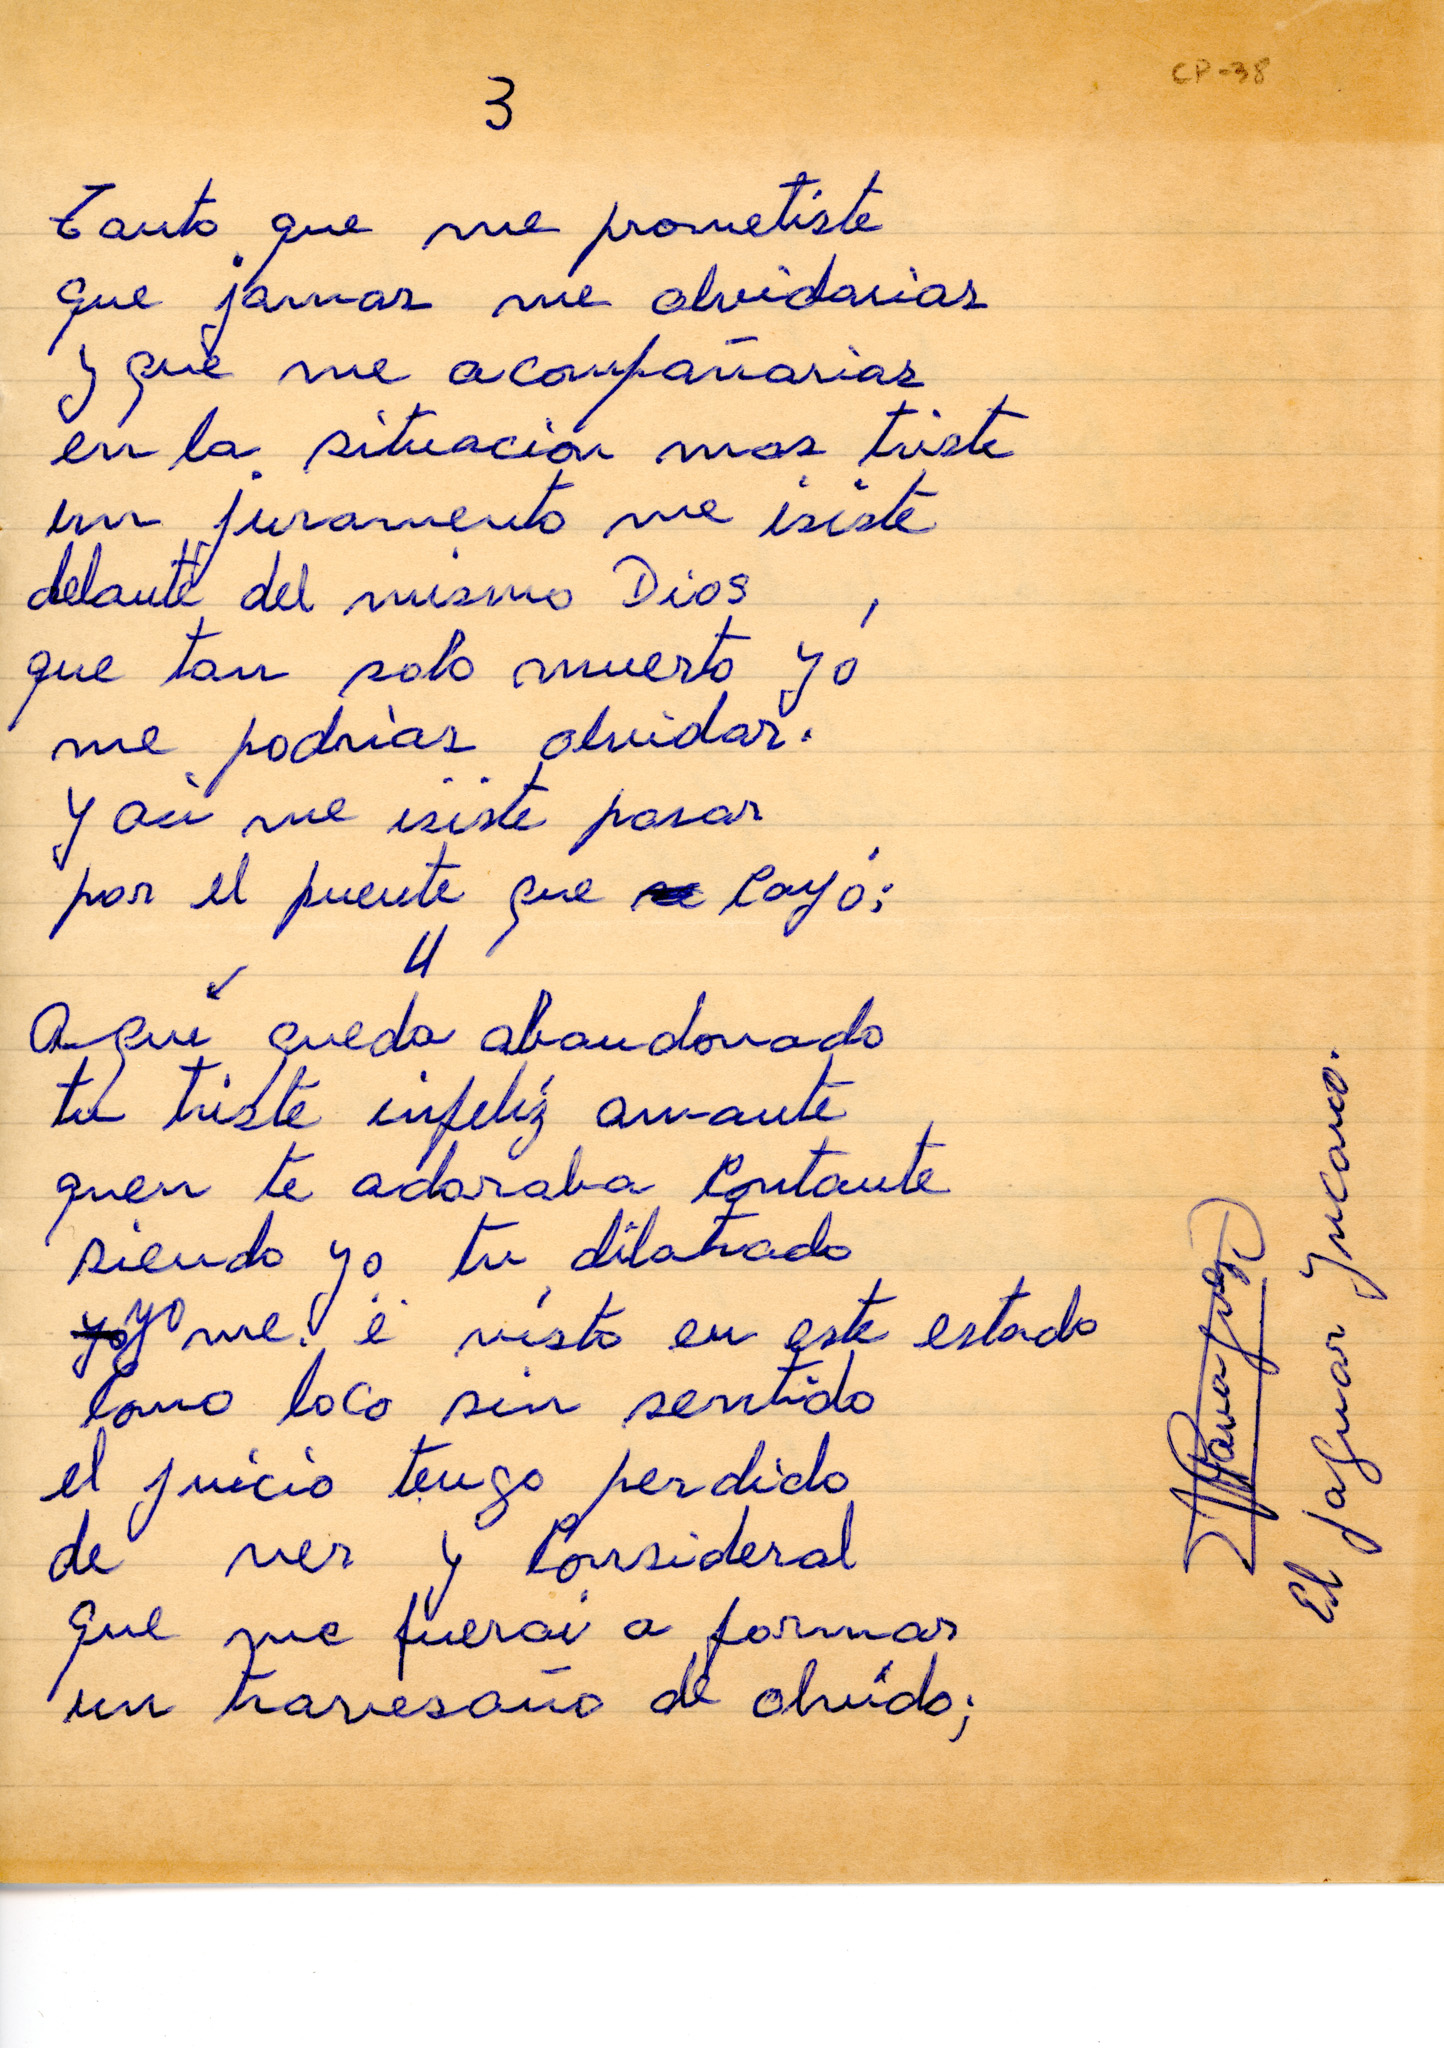 CP-38
3
Tanto que me prometiste
que jamas me olvidarias
y que me acompañarias
en la situacion mas triste
un juramento me isiste
delante del mismo Dios
que tan solo muerto yó
me podrias olvidar.
y asi me isiste pasar
por el puente que se cayó;
4
Aquí queda abandonado
tu triste infeliz amante
quen te adoraba contante
siendo yo tu dilatrado
yo yo me é visto en este estado
como loco sin sentido
el juicio tengo perdido
de ver y Consideral
que me fuerai a formar
un travesaño de olvido;
El Jaguar Yucano.